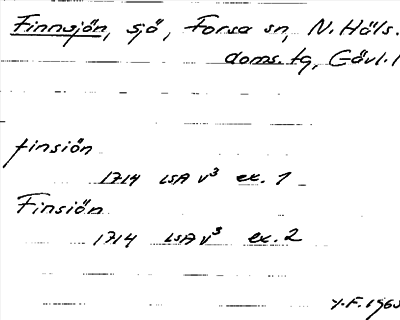 Finnsjön, sjö, Forsa sn, N. Häls.
doms. tg, Gävl. l
finsiön
1714 LSA V³ ex. 1
Finsiön
1714 LSA V³ ex. 2
Y.F. 1963